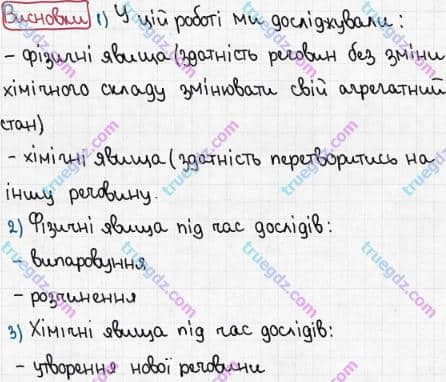 Висновки 1) У цій роботі ми досліджували:
- фізичні явища (здатність речовин без зміни
хімічного складу змінювати свій агрегатний
стан)
- хімічні явища (здатність перетворитись на
іншу речовину.
2) Фізичні явища під час дослідів:
- випаровуння
- розчинення
3) Хімічні явища під час дослідів:
- утворення нової речовини
truegdz.com